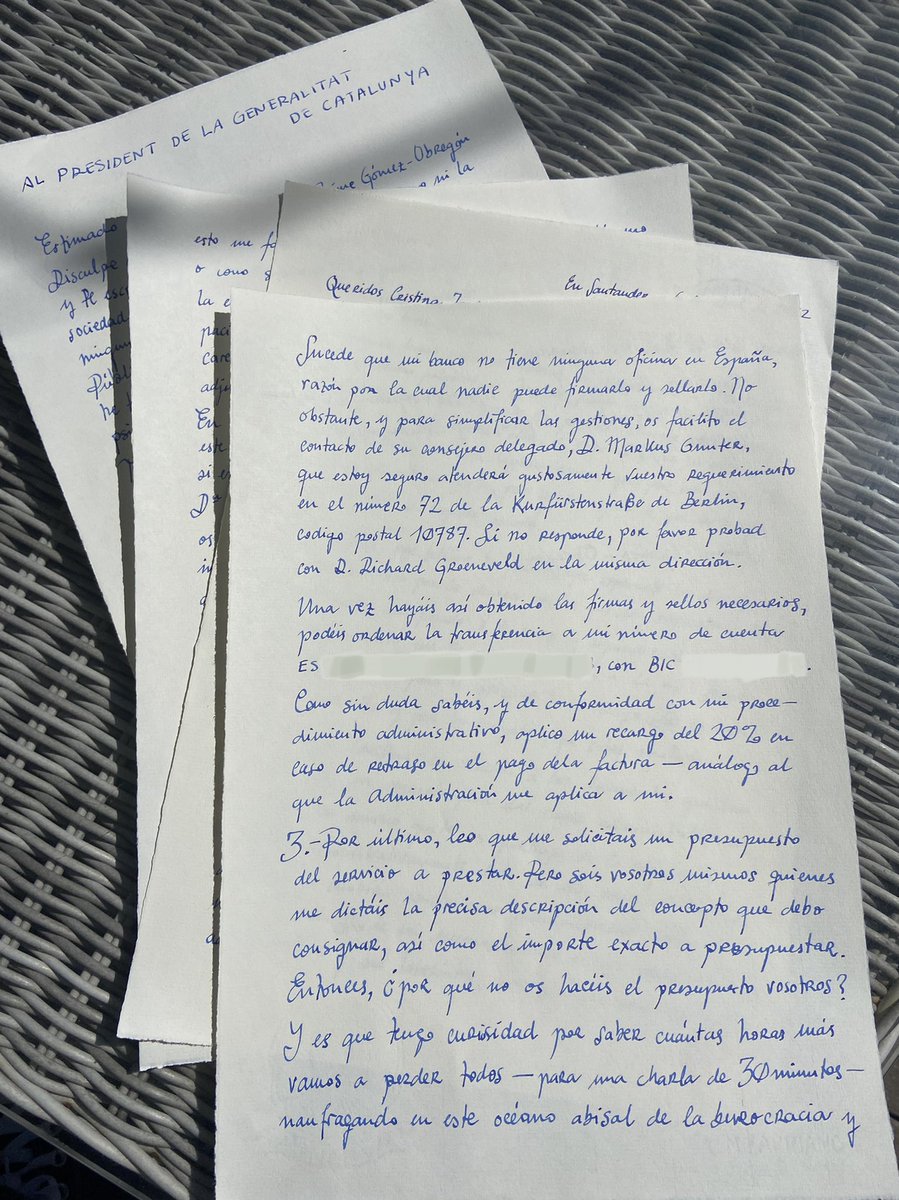 AL PRESIDENT DE LA GENERALITAT
DE CATALUNYA
Gómez-Obregón
ni la
Estimado
Disculpe
y
sociedad
he
esto me
o como
la
En
este
si
os
Queridos Cristina
En Santander
2
Sucede que mi banco no tiene ninguna oficina en España,
razón por la cual nadie puede firmarlo y sellarlo. No
obstante, y para simplificar las gestiones, os facilito el
contacto de su consejero delegado, D. Markus Gunter,
que estoy seguro atenderá gustosamente vuestro requerimiento
en el número 72 de la Kurfürstenstraße de Berlin,
codigo postal 10787. Si no responde, por favor probad
con D. Richard Groeneveld en la misma dirección.
Una vez hayáis así obtenido las firmas y sellos necesarios,
podéis ordenar la transferencia a mi número de cuenta
ES , con BIC .
Como sin duda sabéis, y de conformidad con mi proce-
dimiento administrativo, aplico un recargo del 20% en
caso de retraso en el pago dela factura — análogo al
que la Administración me aplica a mi.
3.-Por último, leo que me solicitais un presupuesto
del servicio a prestar. Pero sois vosotros mismos quienes
me dictáis la precisa descripción del concepto que debo
consignar, así como el importe exacto a presupuestar.
Entonces, ¿por qué no os hacéis el presupuesto vosotros?
Y es que tengo curisidad por saber cuántas horas más
vamos a perder todos — para una charla de 30 minutos —
naufragando en este océano abisal de la burocracia y